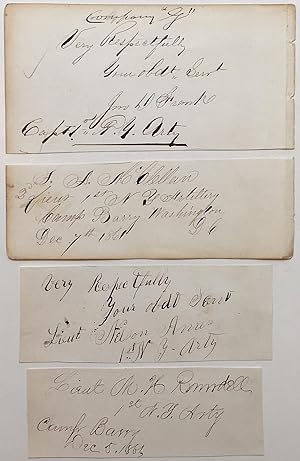 Company "G"
Very Respectfully
Your obdt. Servt
Jos D Frank
Capt 1st N. Y. Arty
S. S. McClellan
2d Lieut 1st N Y Artillery
Camp Barry Washington
Dec 7th 1861 D C
Very Respectfully
Your obdt Servt
Lieut Nelson Ames
1st N Y Arty
Lieut M. H. Rundell
1st N. Y. Arty
Camp Barry
Dec 5, 1861